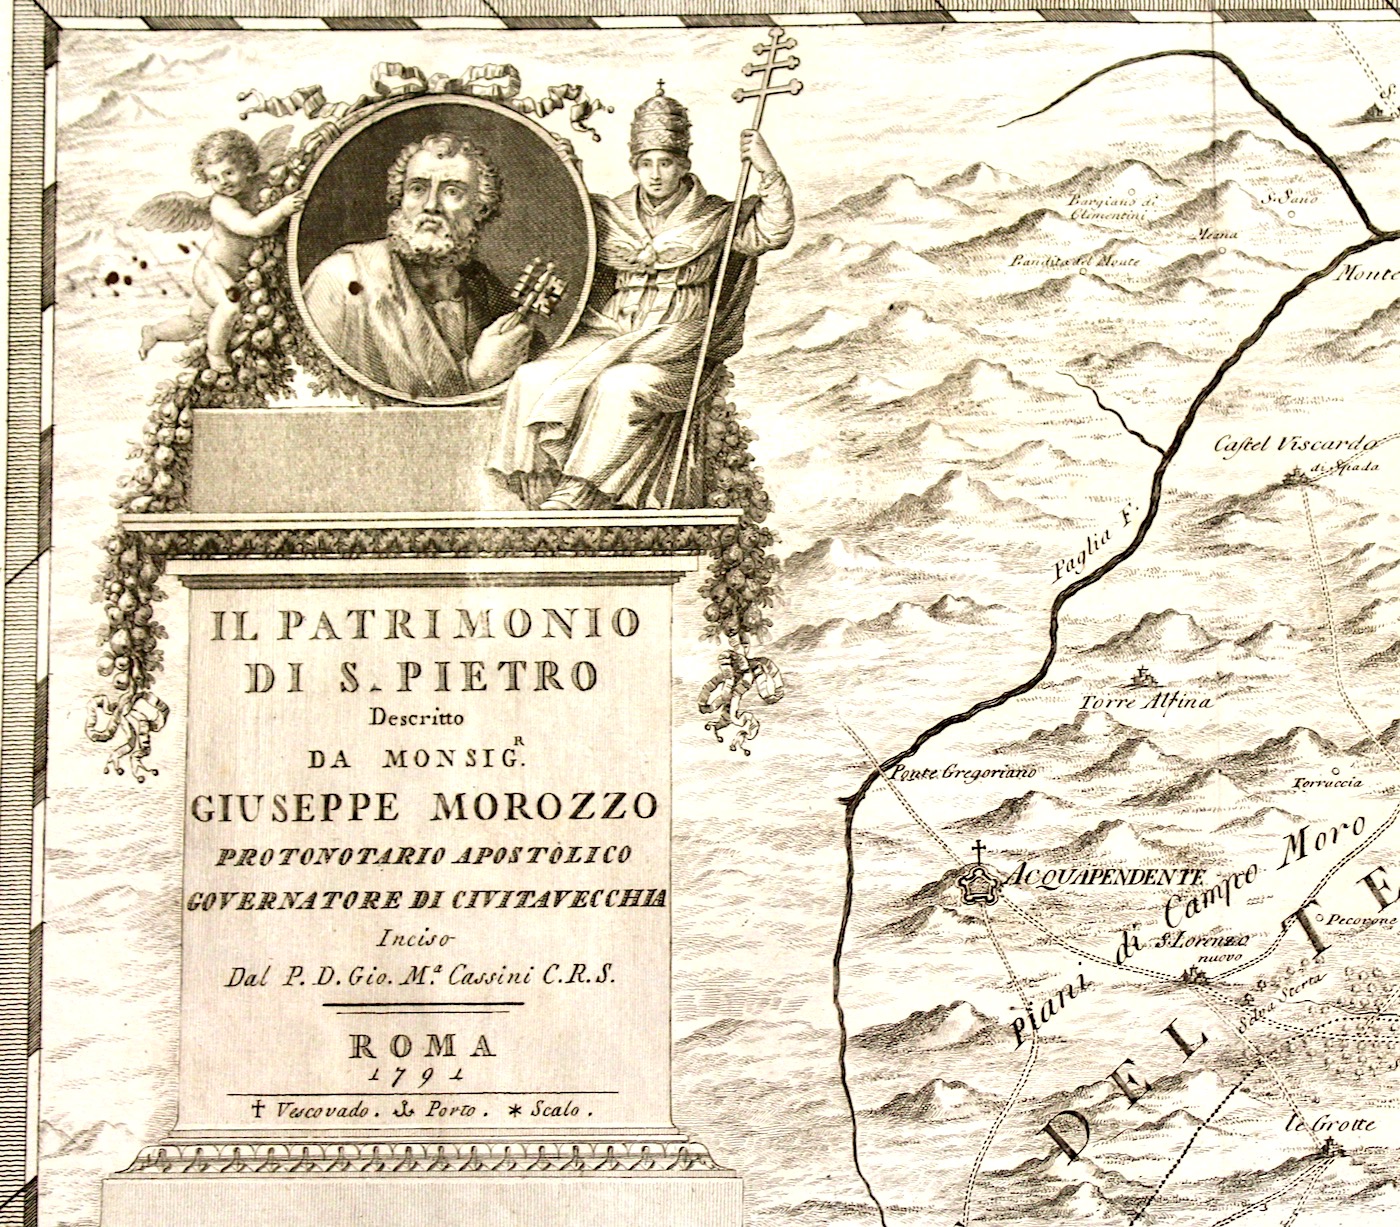 IL PATRIMONIO
DI S. PIETRO
Descritto
DA MONSIG.R
GIUSEPPE MOROZZO
PROTONOTARIO APOSTOLICO
GOVERNATORE DI CIVITAVECCHIA
Inciso
Dal P. D. Gio. M.a Cassini C.R.S.
ROMA
1791
† Vescovado. ⚓ Porto. * Scalo.
S.
Bargiano di
Climentini
S. Sano
Meana
Bandita del Monte
Monte
Castel Viscardo
di Spada
Paglia F.
Torre Alfina
Ponte Gregoriano
Torraccia
ACQUAPENDENTE
Piani di Campo Moro
Pecorone
S. Lorenzo
nuovo
Selva
DEL TE
le Grotte